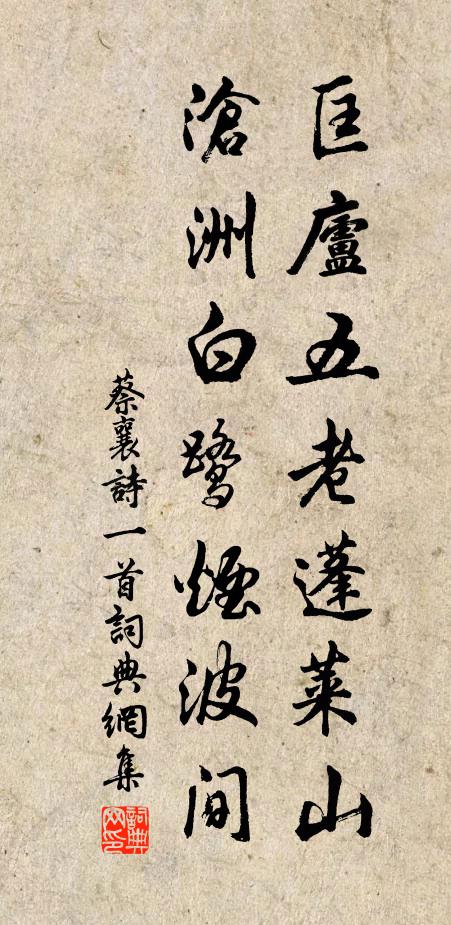 匡廬五老蓬萊山
滄洲白鷺煙波間
蔡襄詩一首詞典網集
詞典网印